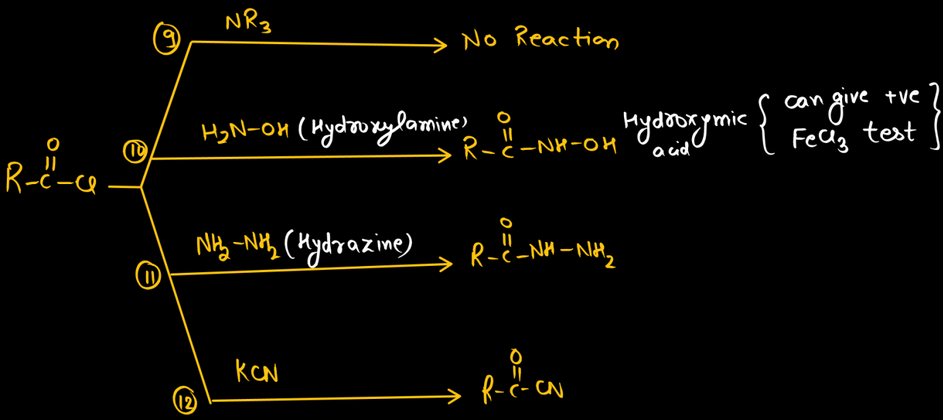 ⑨ NR₃ → No Reaction
⑩ H₂N-OH (Hydroxylamine) → R-C(=O)-NH-OH Hydroxymic acid { can give +ve FeCl₃ test }
R-C(=O)-Cl
⑪ NH₂-NH₂ (Hydrazine) → R-C(=O)-NH-NH₂
⑫ KCN → R-C(=O)-CN